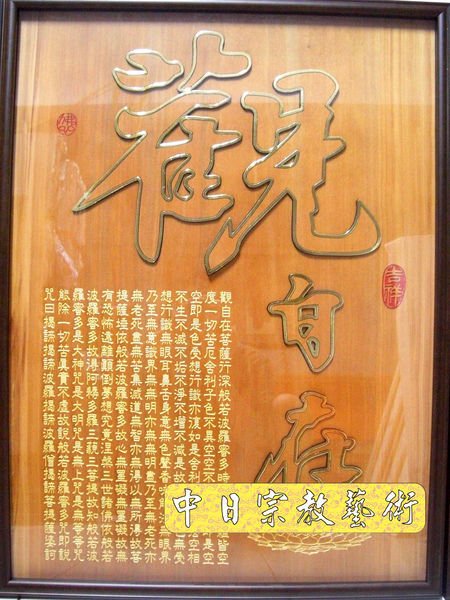 觀自在
吉祥
觀自在菩薩行深般若波羅蜜多時皆空
度一切苦厄舍利子色不異空空不是空
空即是色受想行識亦復如是舍利空相
不生不滅不垢不淨不增不減是故無受
想行識無眼耳鼻舌身意無色聲香味觸法無眼界
乃至無意識界無無明亦無無明盡乃至無老死亦
無老死盡無苦集滅道無智亦無得以無所得故菩
提薩埵依般若波羅蜜多故心無罣礙無罣礙故無
有恐怖遠離顛倒夢想究竟涅槃三世諸佛依般若
波羅蜜多故得阿耨多羅三藐三菩提故知般若波
羅蜜多是大神咒是大明咒是無上咒是無等等咒
能除一切苦真實不虛故說般若波羅蜜多咒即說
咒曰揭諦揭諦波羅揭諦波羅僧揭諦菩提薩婆訶
中日宗教藝術